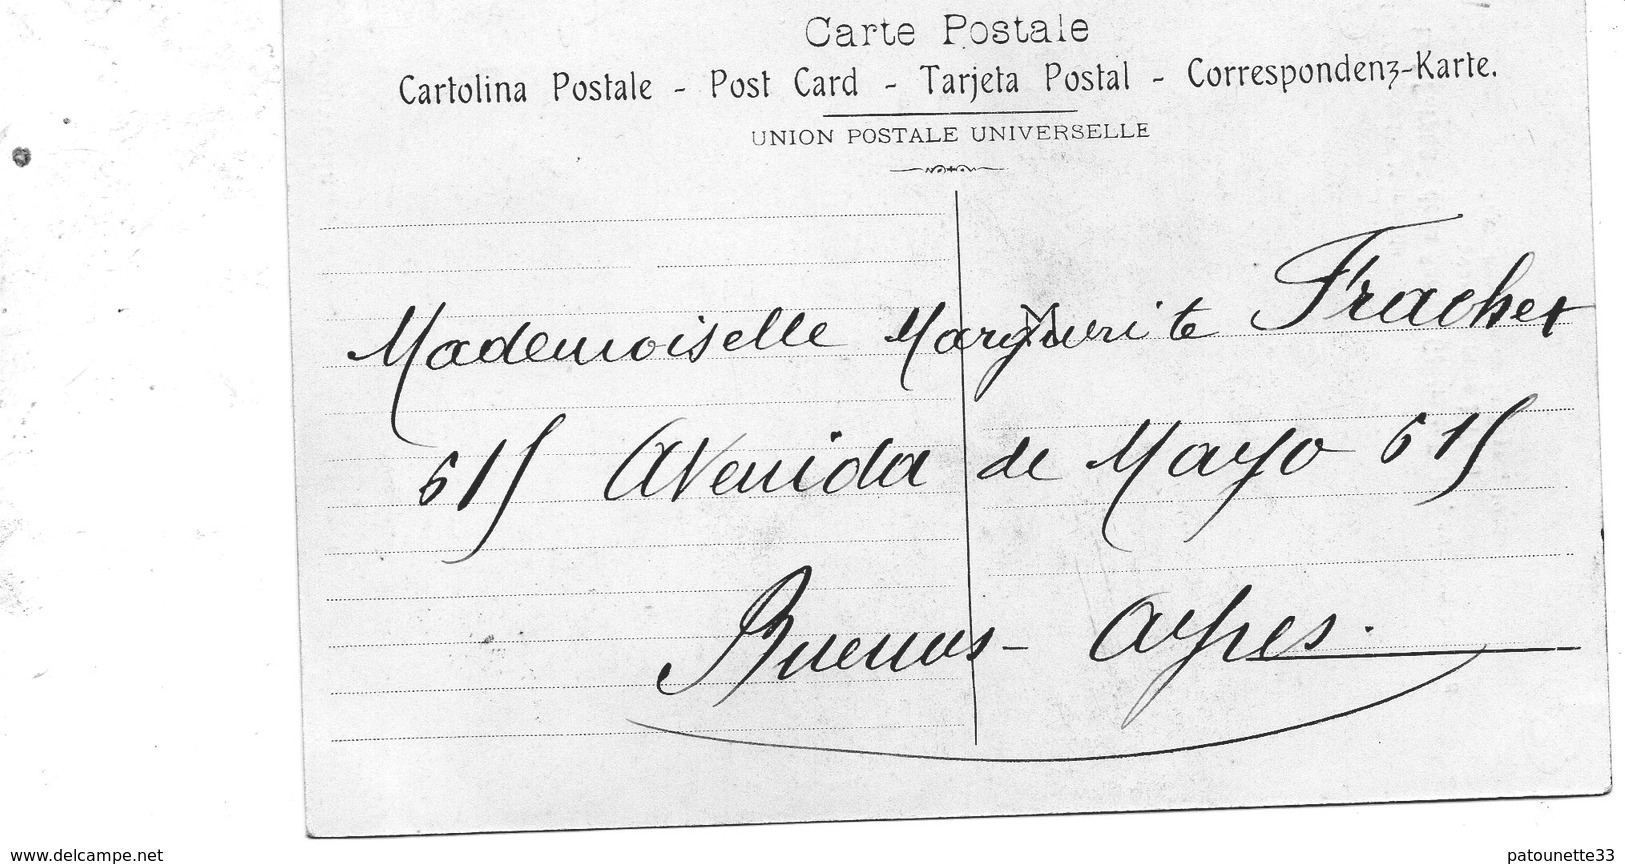 Carte Postale
Cartolina Postale - Post Card - Tarjeta Postal - Correspondenz-Karte.
UNION POSTALE UNIVERSELLE
Mademoiselle Marguerite Frachet
615 Avenida de Mayo 615
Buenos-Ayres.
www.delcampe.net
patounette33